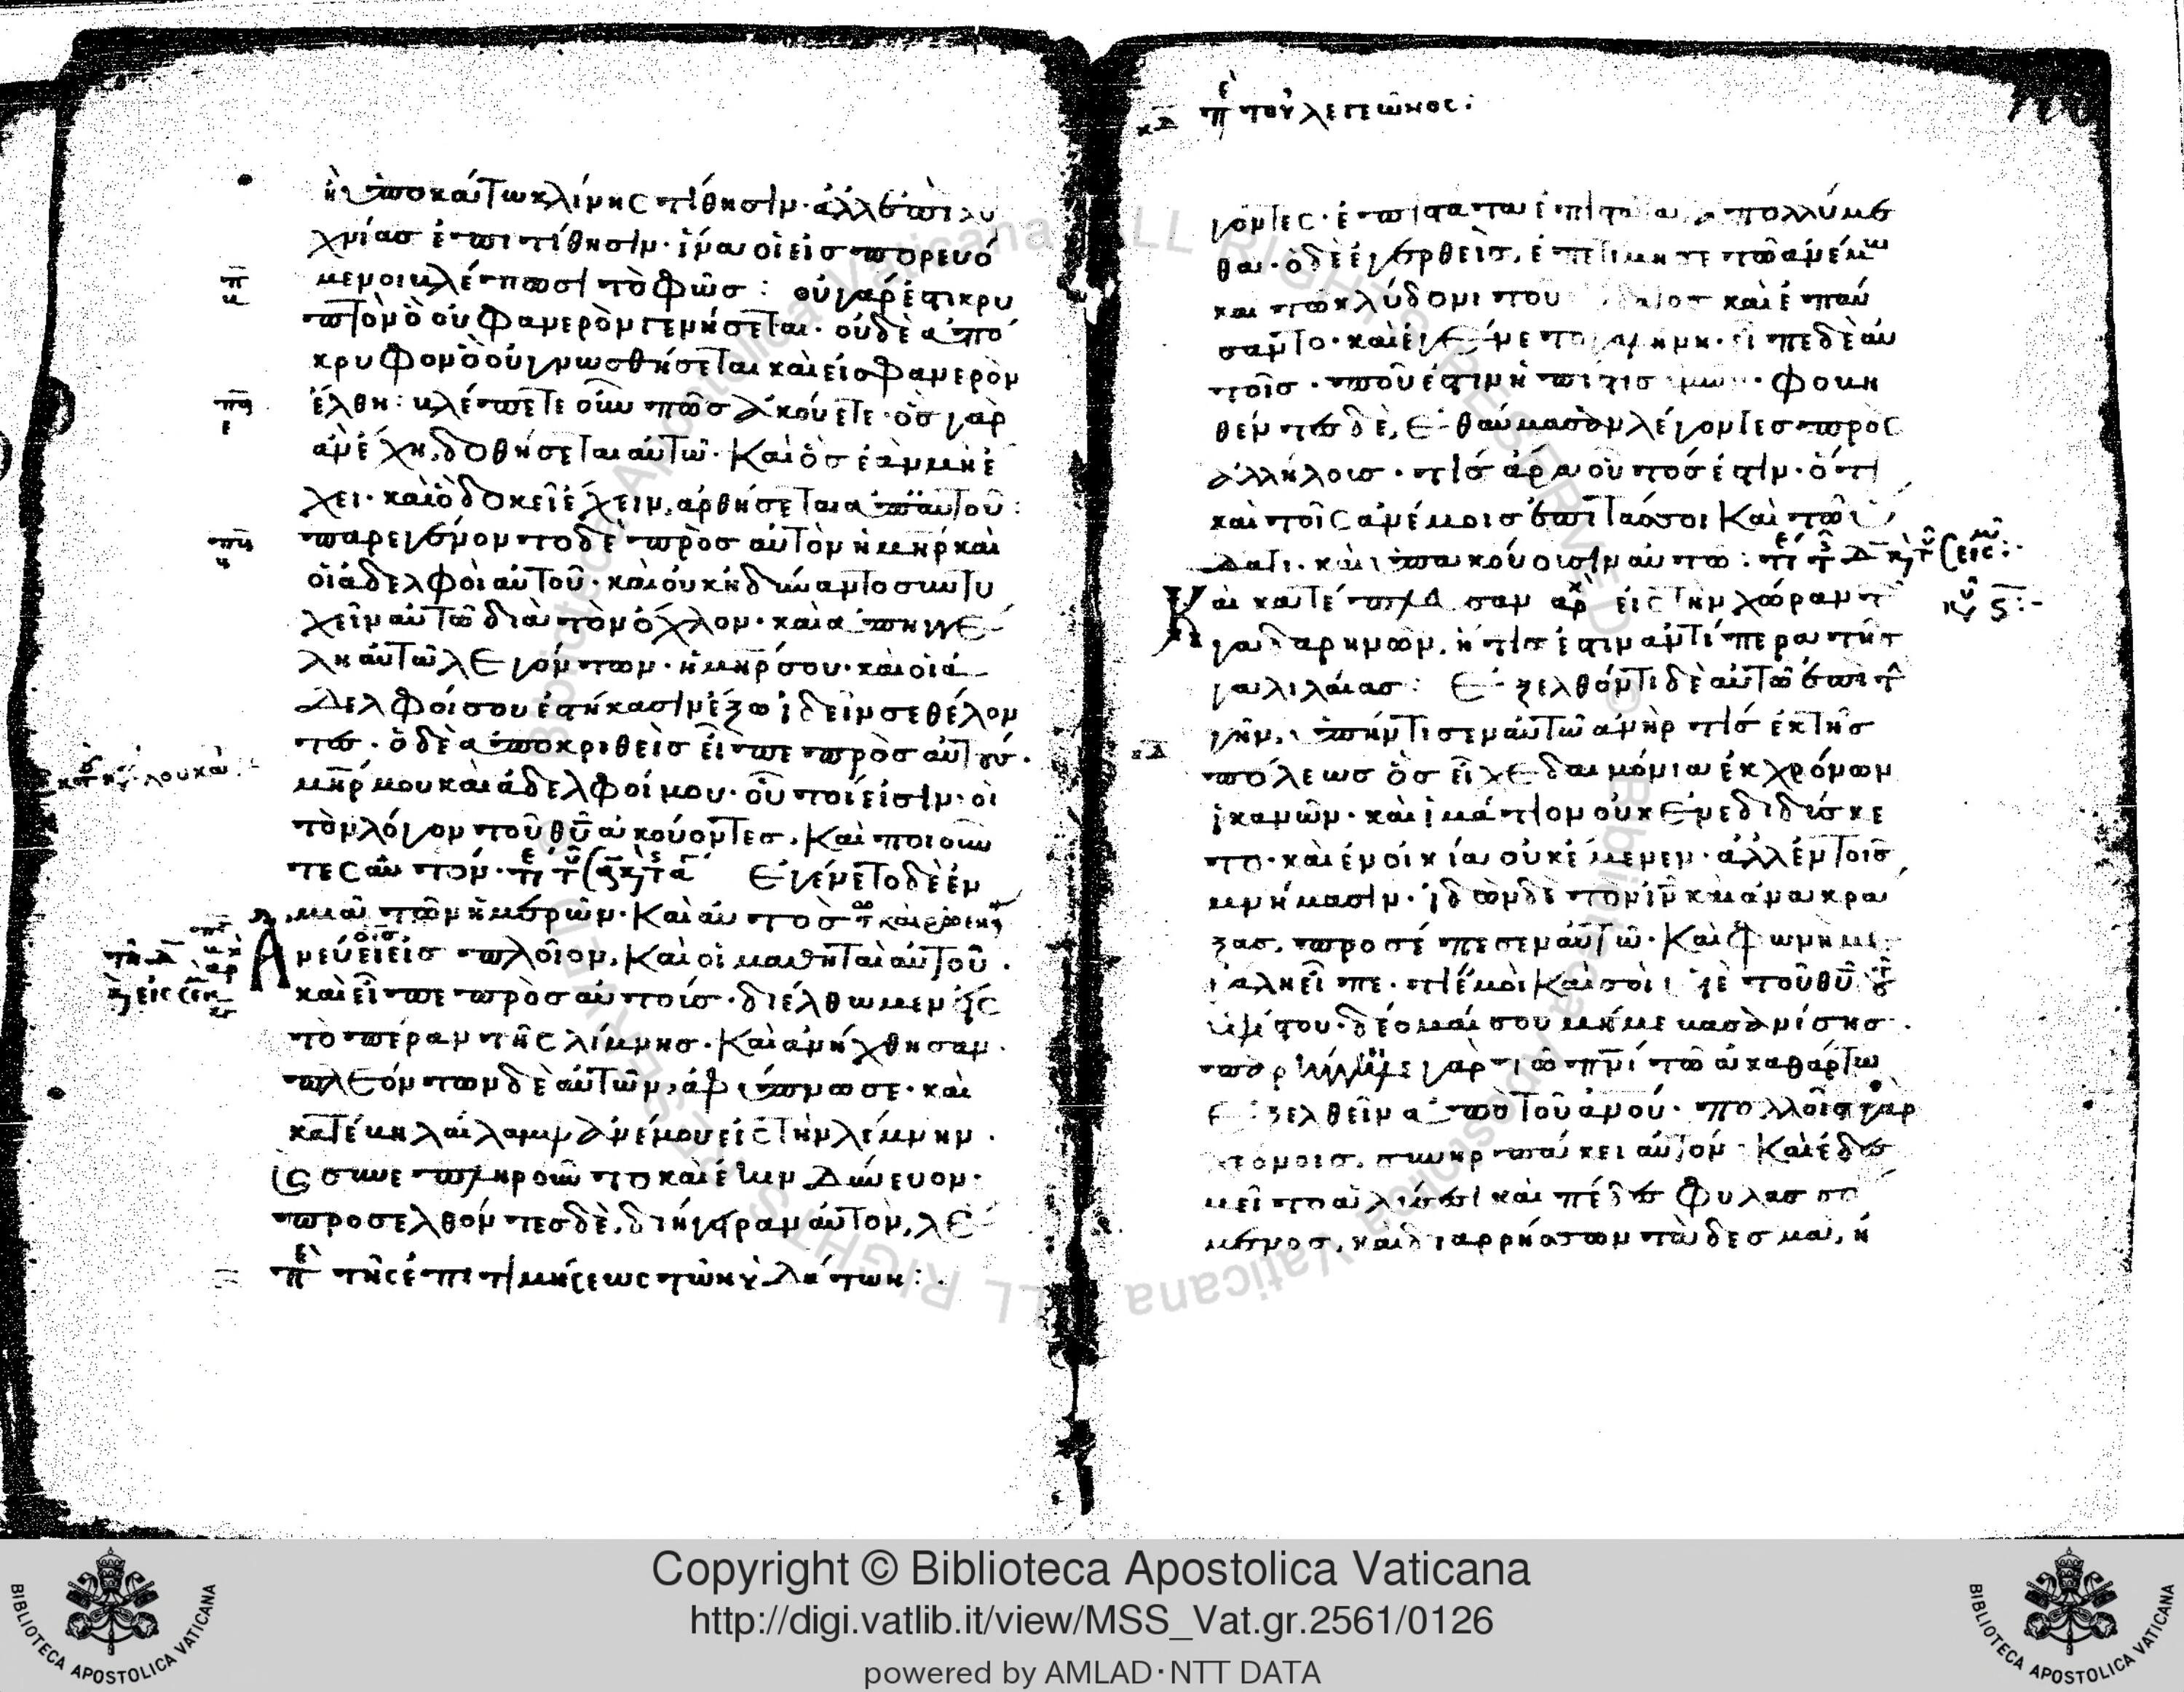 ἢ ὑποκάτω κλίνης τίθησιν· ἀλλ' ἐπὶ λυ
χνίας ἐπιτίθησιν· ἵνα οἱ εἰσπορευό
μενοι βλέπωσι τὸ φῶσ : οὐ γάρ ἐστι κρυ
πτὸν ὃ οὐ φανερὸν γενήσεται· οὐδὲ ἀπό
κρυφον ὃ οὐ γνωσθήσεται καὶ εἰσ φανερὸν
ἔλθη : βλέπετε οὖν πῶσ ἀκούετε· ὃσ γὰρ
ἂν ἔχη, δοθήσεται αὐτῶ· Καὶ ὃσ ἐὰν μὴ ἔ
χει· καὶ ὃ δοκεῖ ἔχειν, ἀρθήσεται ἀπ' αὐτοῦ :
παρεγένοντο δὲ πρὸσ αὐτὸν ἡ μηρ καὶ
οἱ ἀδελφοὶ αὐτοῦ· καὶ οὐκ ἠδύναντο συντυ
χεῖν αὐτῶ διὰ τὸν ὄχλον· καὶ ἀπηγγέ
λη αὐτῶ λεγόντων· ἡ μηρ σου· καὶ οἱ ἀ
δελφοί σου ἑστήκασιν ἔξω ἰδεῖν σε θέλον
τεσ· ὁ δὲ ἀποκριθεὶσ εἶπε πρὸσ αὐτούσ·
μηρ μου καὶ ἀδελφοί μου· οὗτοί εἰσιν· οἱ
τὸν λόγον τοῦ θυ ἀκούοντεσ, Καὶ ποιοῦν
τες αὐτόν· Ἐγένετο δὲ ἐν
μιᾶ τῶν ἡμερῶν· Καὶ αὐτὸσ
ἐνέβη εἰσ πλοῖον, Καὶ οἱ μαθηταὶ αὐτοῦ·
καὶ εἶπε πρὸσ αὐτούσ· διέλθωμεν εἰς
τὸ πέραν τῆς λίμνησ· Καὶ ἀνήχθησαν·
πλεόντων δὲ αὐτῶν, ἀφύπνωσε· καὶ
κατέβη λαῖλαψ ἀνέμου εἰς τὴν λίμνην·
Καὶ συνεπληροῦντο καὶ ἐκινδύνευον·
προσελθόντεσ δὲ, διήγειραν αὐτὸν, λέ
τῆς ἐπιτιμήσεως τῶν ὑδάτων :
κδ πε τοῦ λεγεῶνος :
γοντες· ἐπιστάτα ἐπιστάτα ἀπολλύμε
θα· ὁ δὲ ἐγερθεὶσ, ἐπετίμησε τῶ ἀνέμω
και τῶ κλύδωνι τοῦ ὕδατοσ καὶ ἐπαύ
σαντο· καὶ ἐγένετο γαλήνη· εἶπε δὲ αὐ
τοῖσ· ποῦ ἐστιν ἡ πίστισ ὑμῶν· φοβη
θέντεσ δὲ, ἐθαύμασαν λέγοντεσ πρὸς
ἀλλήλουσ· τίσ ἄρα οὗτοσ ἐστίν· ὅτι
καὶ τοῖς ἀνέμοισ ἐπιτάσσει Καὶ τῶ ὕ
δατι· καὶ ὑπακούουσιν αὐτῶ :
Καὶ κατέπλευσαν εἰς τὴν χώραν τῶν
γαδαρηνῶν, ἥτισ ἐστιν ἀντίπερα τῆσ
γαλιλαίασ : Ἐξελθόντι δὲ αὐτῶ ἐπὶ τὴν
γῆν, ὑπήντησεν αὐτῶ ἀνὴρ τίσ ἐκ τῆσ
πόλεωσ ὃσ εἶχε δαιμόνια ἐκ χρόνων
ἱκανῶν· καὶ ἱμάτιον οὐκ ἐνεδιδύσκε
το· καὶ ἐν οἰκία οὐκ ἔμενεν· ἀλλ' ἐν τοῖσ
μνήμασιν· ἰδὼν δὲ τὸν ιν καὶ ἀνακρά
ξασ, προσέπεσεν αὐτῶ· Καὶ φωνῆ με
γάλη εἶπε· τί ἐμοὶ Καὶ σοὶ ιυ υἱὲ τοῦ θυ τοῦ
ὑψίστου· δέομαί σου μή με βασανίσησ·
παρήγγειλε γὰρ τῶ πνι τῶ ἀκαθάρτω
ἐξελθεῖν ἀπὸ τοῦ ἀνου· πολλοῖσ γὰρ
χρόνοισ, συνηρπάκει αὐτόν· Καὶ ἐδε
σμεῖτο ἁλύσεσι καὶ πέδαισ φυλασσό
μενοσ, καὶ διαρρήσσων τὰ δεσμὰ, ἠ
Copyright © Biblioteca Apostolica Vaticana
http://digi.vatlib.it/view/MSS_Vat.gr.2561/0126
powered by AMLAD·NTT DATA
BIBLIOTECA APOSTOLICA VATICANA
BIBLIOTECA APOSTOLICA VATICANA